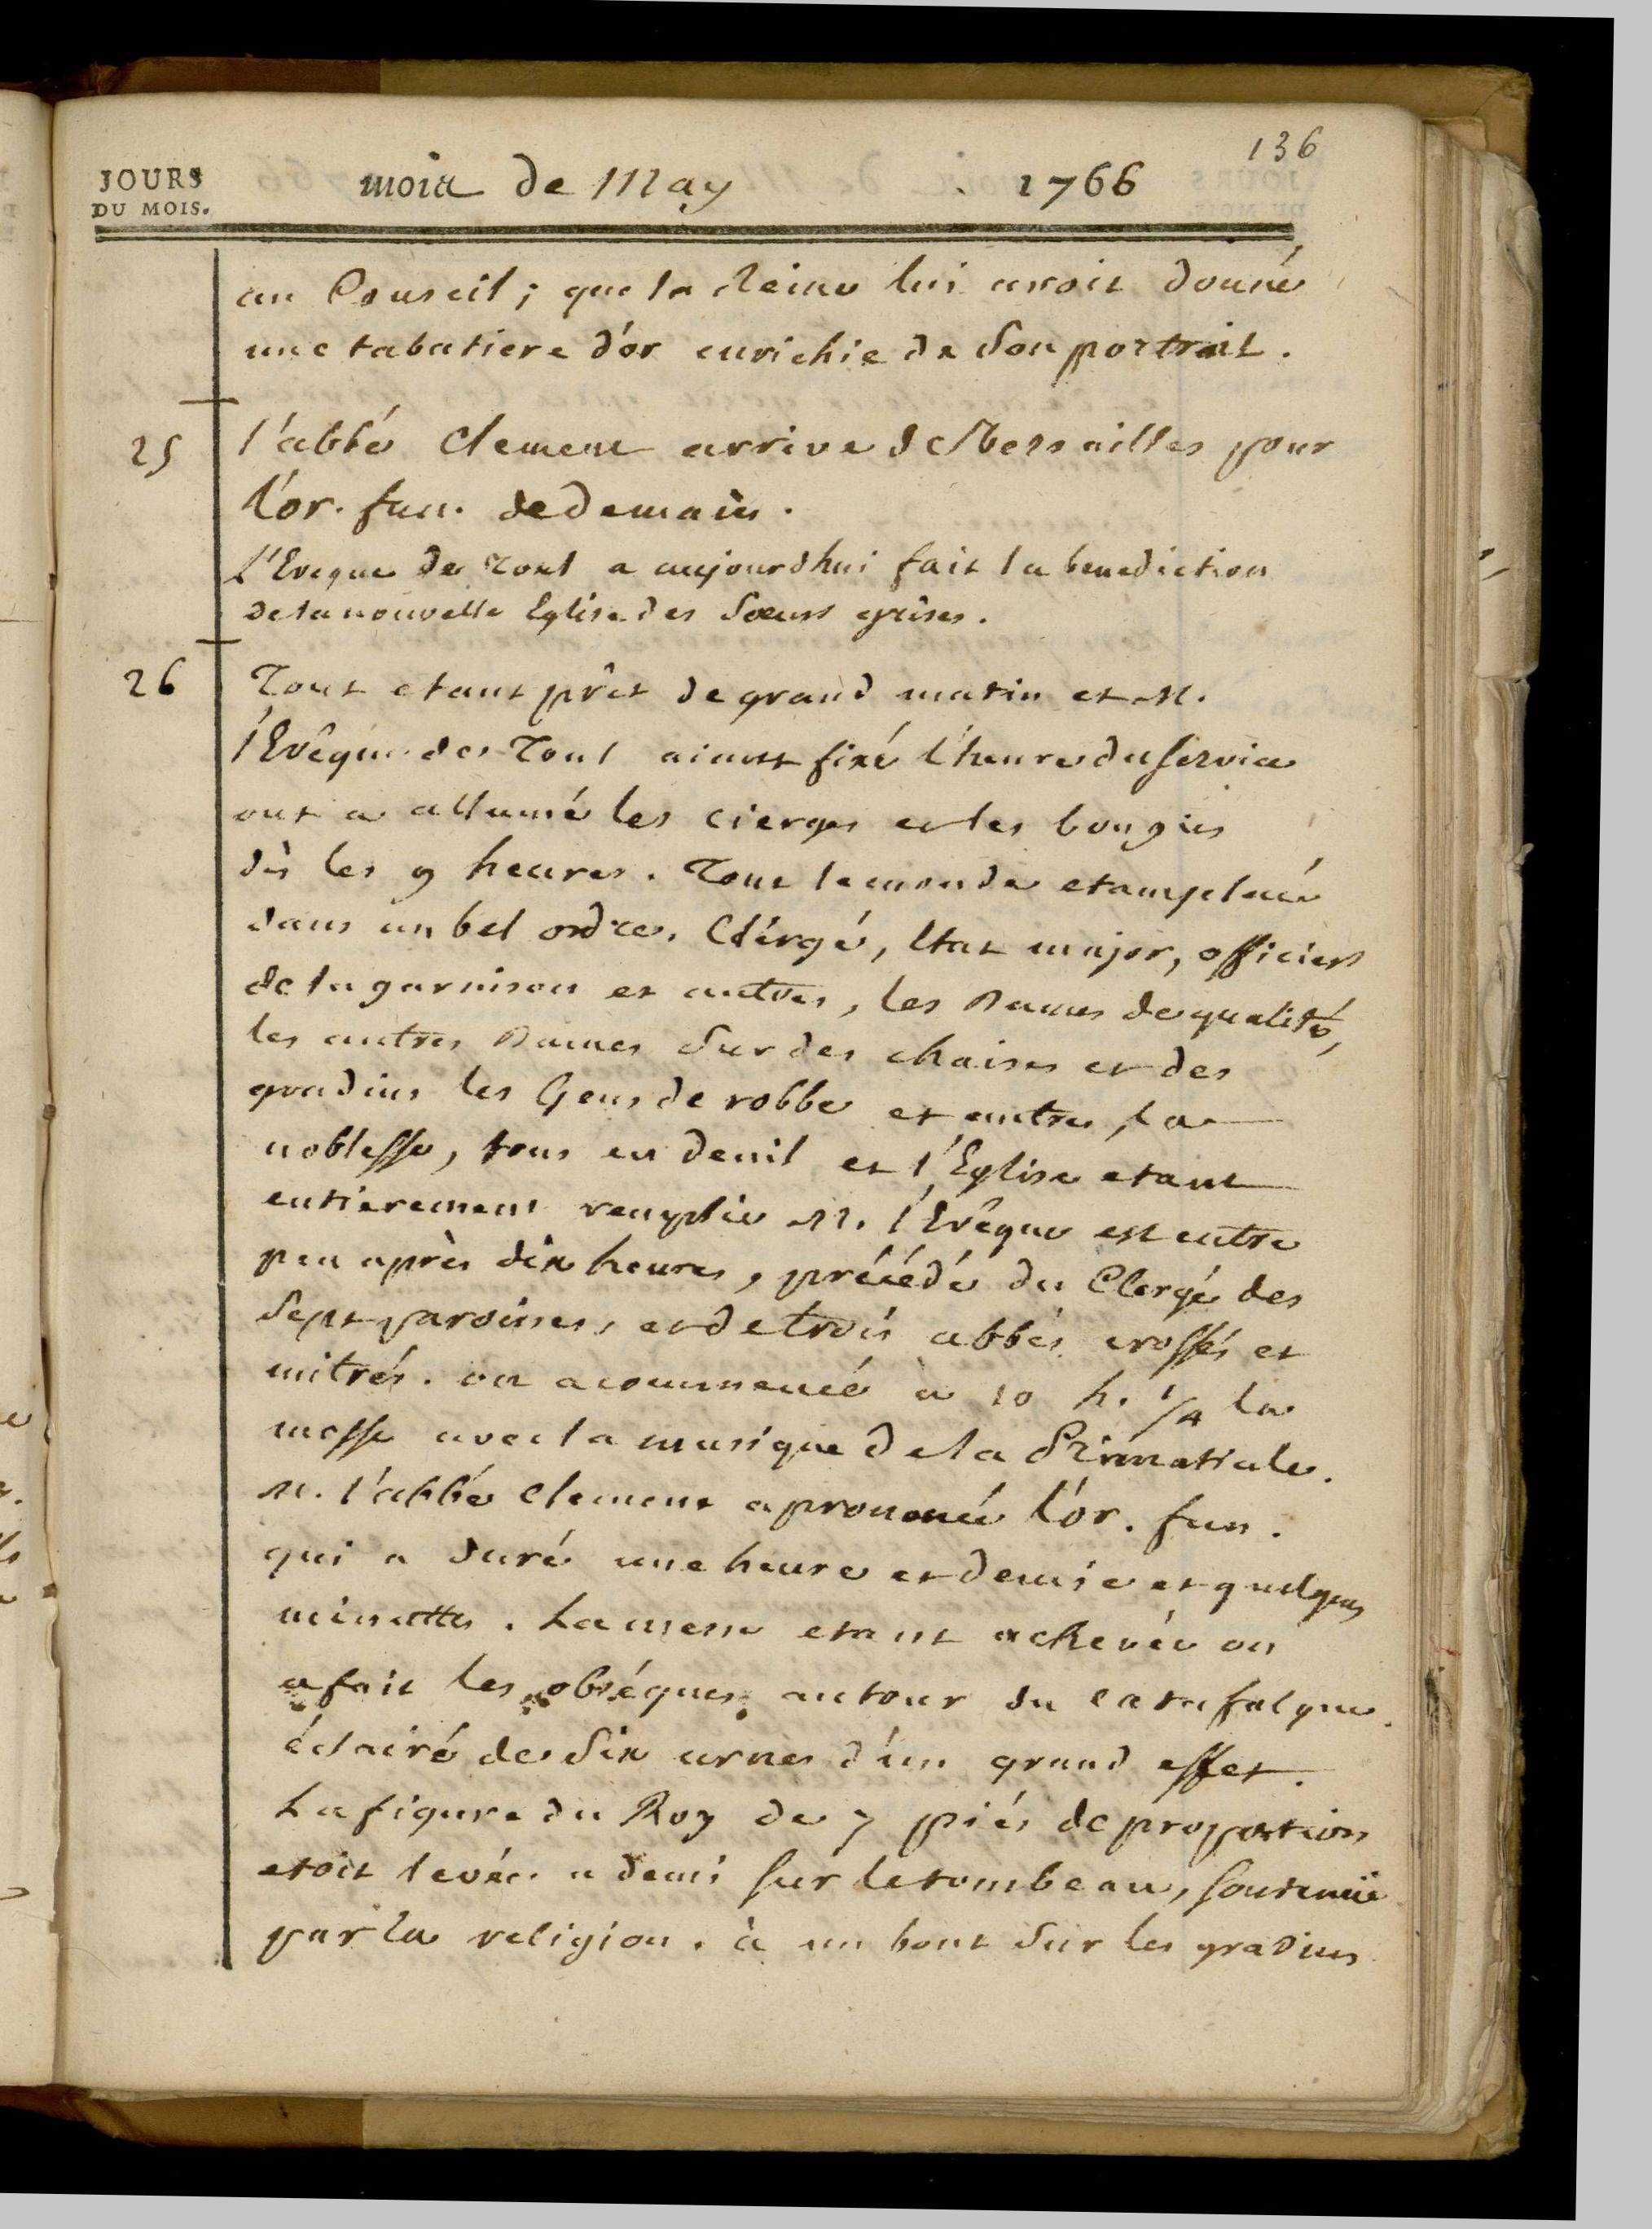 136
JOURS
DU MOIS.
mois de May 1766
au Conseil; que la Reine lui avoit donné
une tabatiere d'or enrichie de Son portrait.
25 l'abbé Clement arrive de Versailles pour
l'or. fun. de demain.
l'Eveque de Toul a aujourdhui fait la benediction
de la nouvelle Eglise des Sœurs grises.
26 Tout etant prêt de grand matin et M.
l'Evêque de Toul aiant fixé l'heure du service
ont a allumé les cierges et les bougies
dès les 9 heures. Tout le monde etant placé
dans un bel ordre, Clérgé, Etat major, officiers
de la garnison et autres, les Dames de qualité,
les autres Dames Sur des chaises et des
gradins les Gens de robbe et autres, la
noblesse, tous en deuil et l'Eglise etant
entierement remplie M. l'Evêque est entré
peu après dix heures, précédé du Clergé des
Sept paroisses, et de trois abbés crossés et
mitrés. on a commencé à 10 h. 1/4 la
messe avec la musique de la Primatiale.
M. l'abbé Clement a prononcé l'or. fun.
qui a duré une heure et demie et quelques
minuttes. La messe etant achevée on
a fait les obséques autour du catafalque
éclairé de Six urnes d'un grand effet.
La figure du Roy de 7 piés de proportion
etoit levée a demi sur le tombeau, soutenuë
par la religion. à un bout Sur les gradins